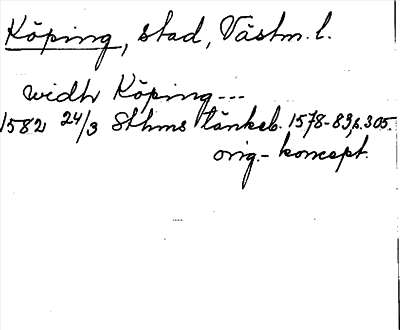 Köping, stad, Västm. l.
widh Köping---
1582 24/3 Sthms tänkeb. 1578-83, s. 305.
orig.- koncept.